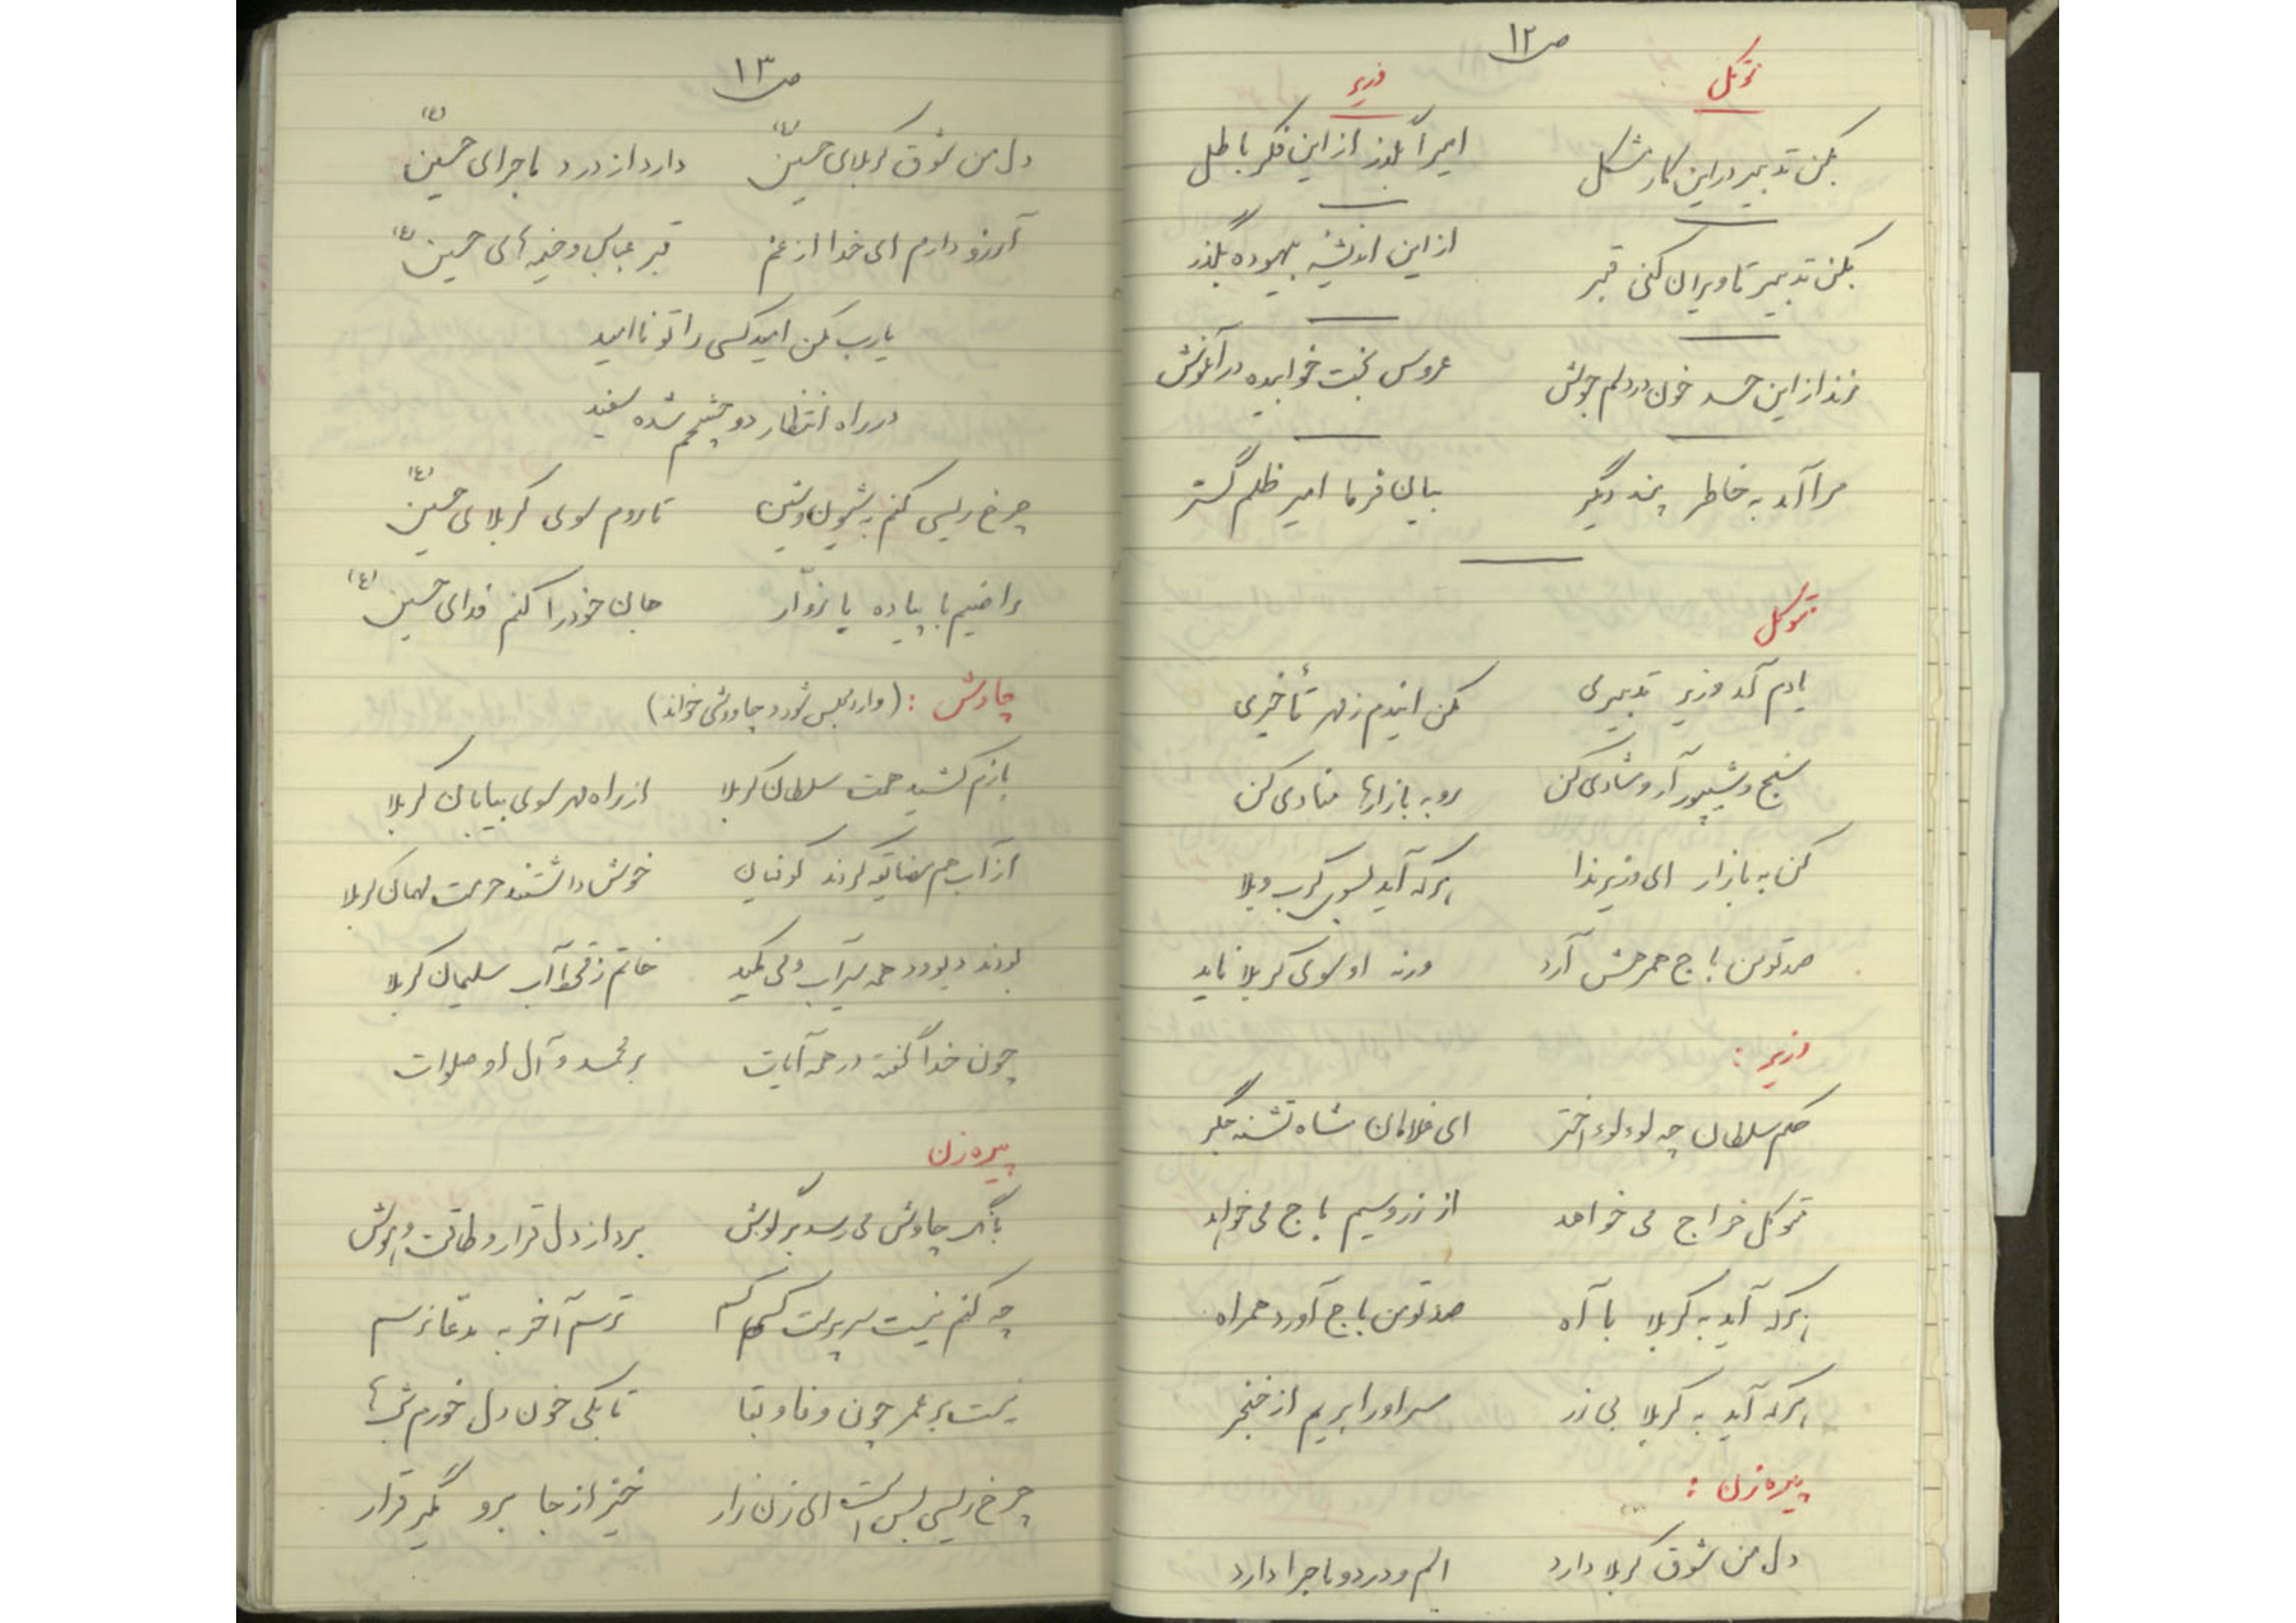 ص ۱۲
توکل وزیر
بکن تدبیر در این کار مشکل امیرا بگذر از این فکر باطل
بکن تدبیر تا ویران کنی قبر از این اندیشه بیهوده بگذر
زند از این حسد خون در دلم جوش عروس بخت خوابیده در آغوش
مرا آمد به خاطر پند دیگر بیان فرما امیر ظلم گستر
متوکل
یادم آمد وزیر تدبیری مکن ایندم ز مهر تأخیری
سنج و شیپور آر و شادی کن رو به بازارها منادی کن
کن به بازار ای وزیر ندا هرکه آید بسوی کرب و بلا
صد تومن باج همرهش آرد ورنه او سوی کربلا ناید
وزیر :
حکم سلطان چه لوء لوء اختر ای غلامان شاه تشنه جگر
متوکل خراج می خواهد از زر و سیم باج می خواهد
هرکه آید به کربلا با آه صد تومن باج آورد همراه
هرکه آید به کربلا بی زر سر او را بریم از خنجر
پیره زن :
دل من شوق کربلا دارد الم و درد و ماجرا دارد
ص ۱۳
دل من شوق کربلای حسین (ع) دارد از درد ماجرای حسین (ع)
آرزو دارم ای خدا از غم قبر عباس و خیمه های حسین (ع)
یارب مکن امید کسی را تو ناامید
در راه انتظار دو چشمم شده سفید
چرخ ریسی کنم به شیون و شین تا روم سوی کربلای حسین (ع)
راضیم با پیاده یا زوّار جان خود را کنم فدای حسین (ع)
چاوش : (وارد مجلس شود و چاووشی خواند)
بازم کشید همت سلطان کربلا از راه مهر سوی بیابان کربلا
از آب هم مضایقه کردند کوفیان خوش داشتند حرمت مهمان کربلا
بودند دیو و دد همه سیراب و می مکید خاتم ز قحط آب سلیمان کربلا
چون خدا گفته در همه آیات بر محمد و آل او صلوات
پیره زن
بانگ چاوش می رسد بر گوش برد از دل قرار و طاقت و هوش
چه کنم نیست سرپرست کسم ترسم آخر به مدعا نرسم
نیست بر عمر چون وفا و بقا تا بکی خون دل خورم شبها
چرخ ریسی بس است ای زن زار خیز از جا برو مگیر قرار